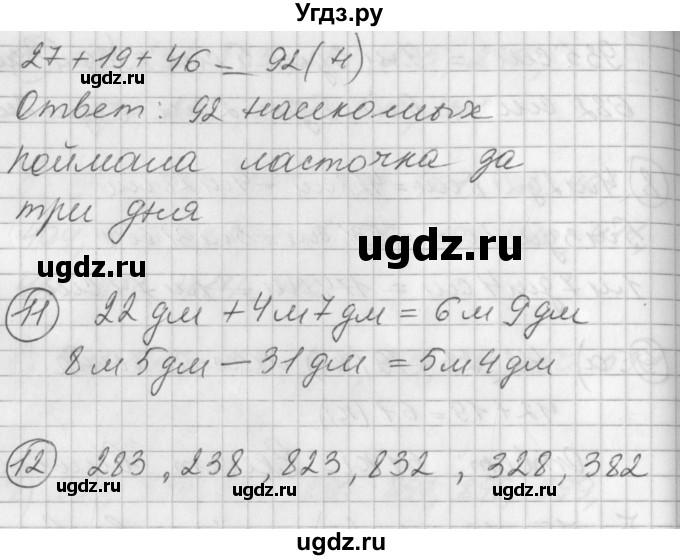 Угдз.ру
27 + 19 + 46 = 92 (н)
ugdz.ru
Ответ: 92 насекомых
поймала ласточка за
ugdz.ru
три дня
ugdz.ru
ugdz.ru
11 22 дм + 4 м 7 дм = 6 м 9 дм
8 м 5 дм – 31 дм = 5 м 4 дм
ugdz.ru ugdz.ru
12 283, 238, 823, 832, 328, 382
ugdz.ru ugdz.ru ugdz.ru
ugdz.ru